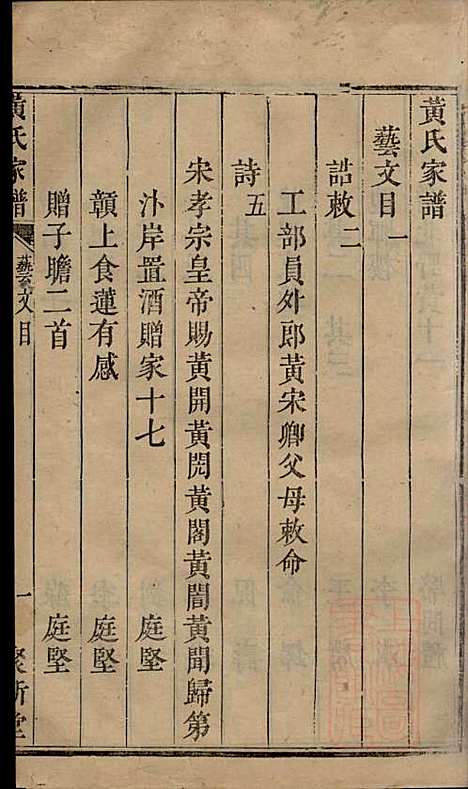 黃氏家譜
藝文目一
誥敕二
工部員外郎黃宋卿父母敕命
詩五
宋孝宗皇帝賜黃開黃閌黃閣黃誾黃聞歸第
汴岸置酒贈家十七 庭堅
贛上食蓮有感 庭堅
贈子瞻二首 庭堅
黃氏家譜 藝文目 一